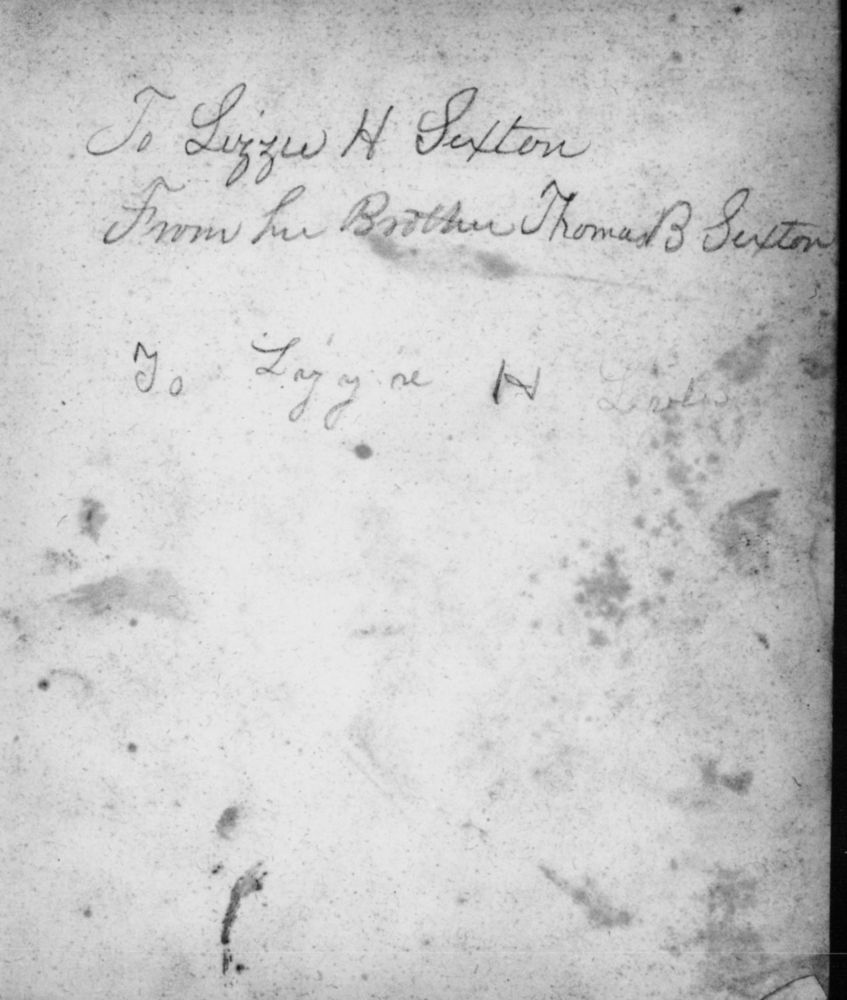 To Lizzie H Sexton
From her Brother Thomas B Sexton
To Lizzie H